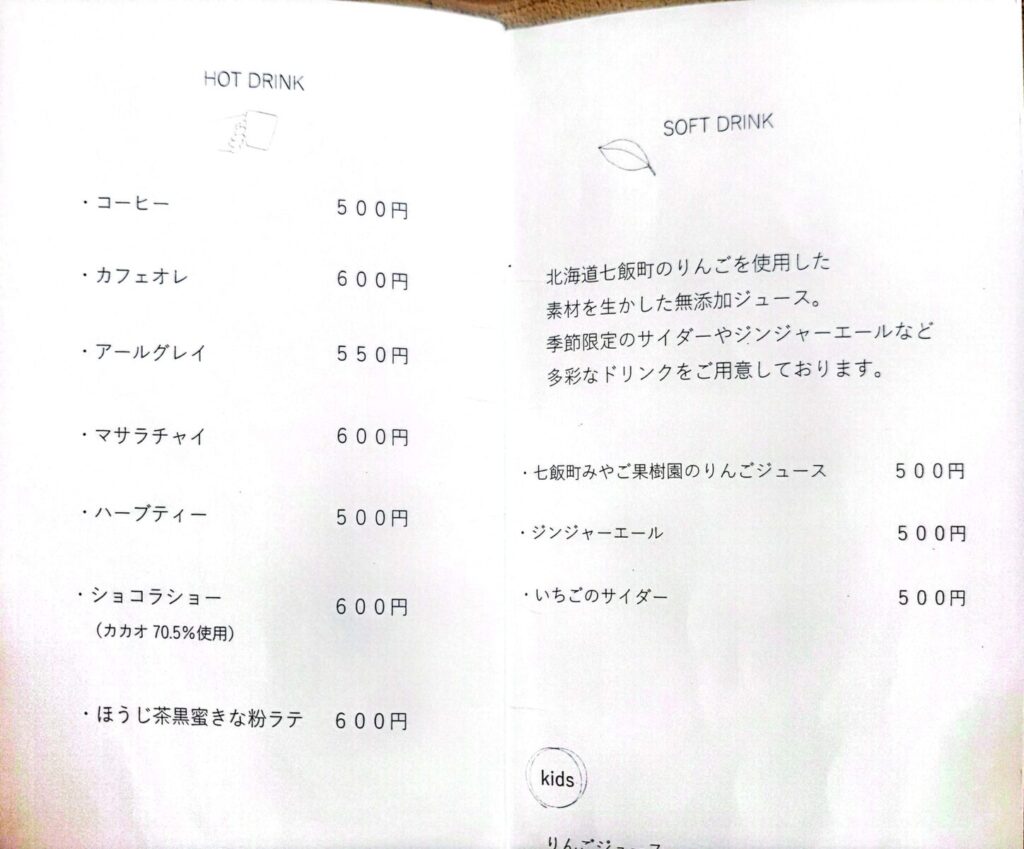 HOT DRINK
・コーヒー 500円
・カフェオレ 600円
・アールグレイ 550円
・マサラチャイ 600円
・ハーブティー 500円
・ショコラショー 600円
（カカオ 70.5％使用）
・ほうじ茶黒蜜きな粉ラテ 600円
SOFT DRINK
北海道七飯町のりんごを使用した
素材を生かした無添加ジュース。
季節限定のサイダーやジンジャーエールなど
多彩なドリンクをご用意しております。
・七飯町みやご果樹園のりんごジュース 500円
・ジンジャーエール 500円
・いちごのサイダー 500円
kids
りんごジュース